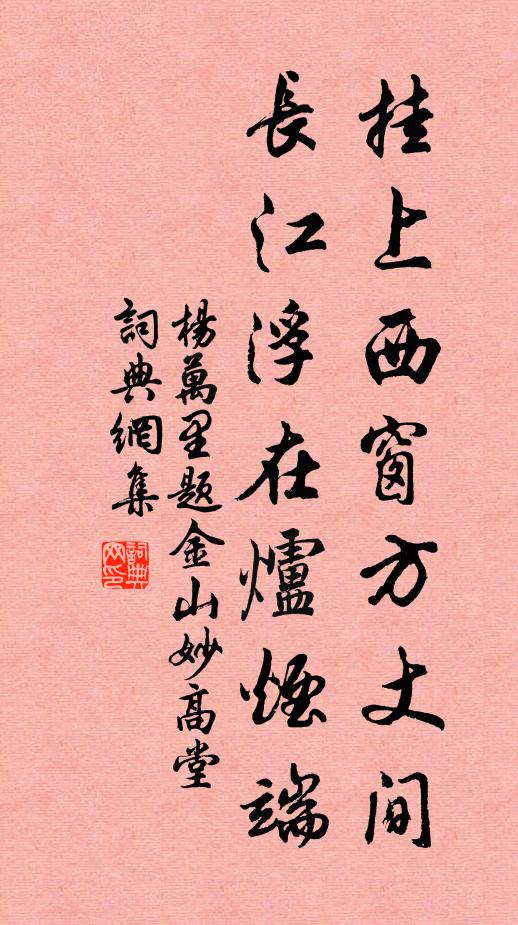 挂上西窗方丈間
長江浮在爐煙端
楊萬里題金山妙高堂
詞典網集
詞典網印